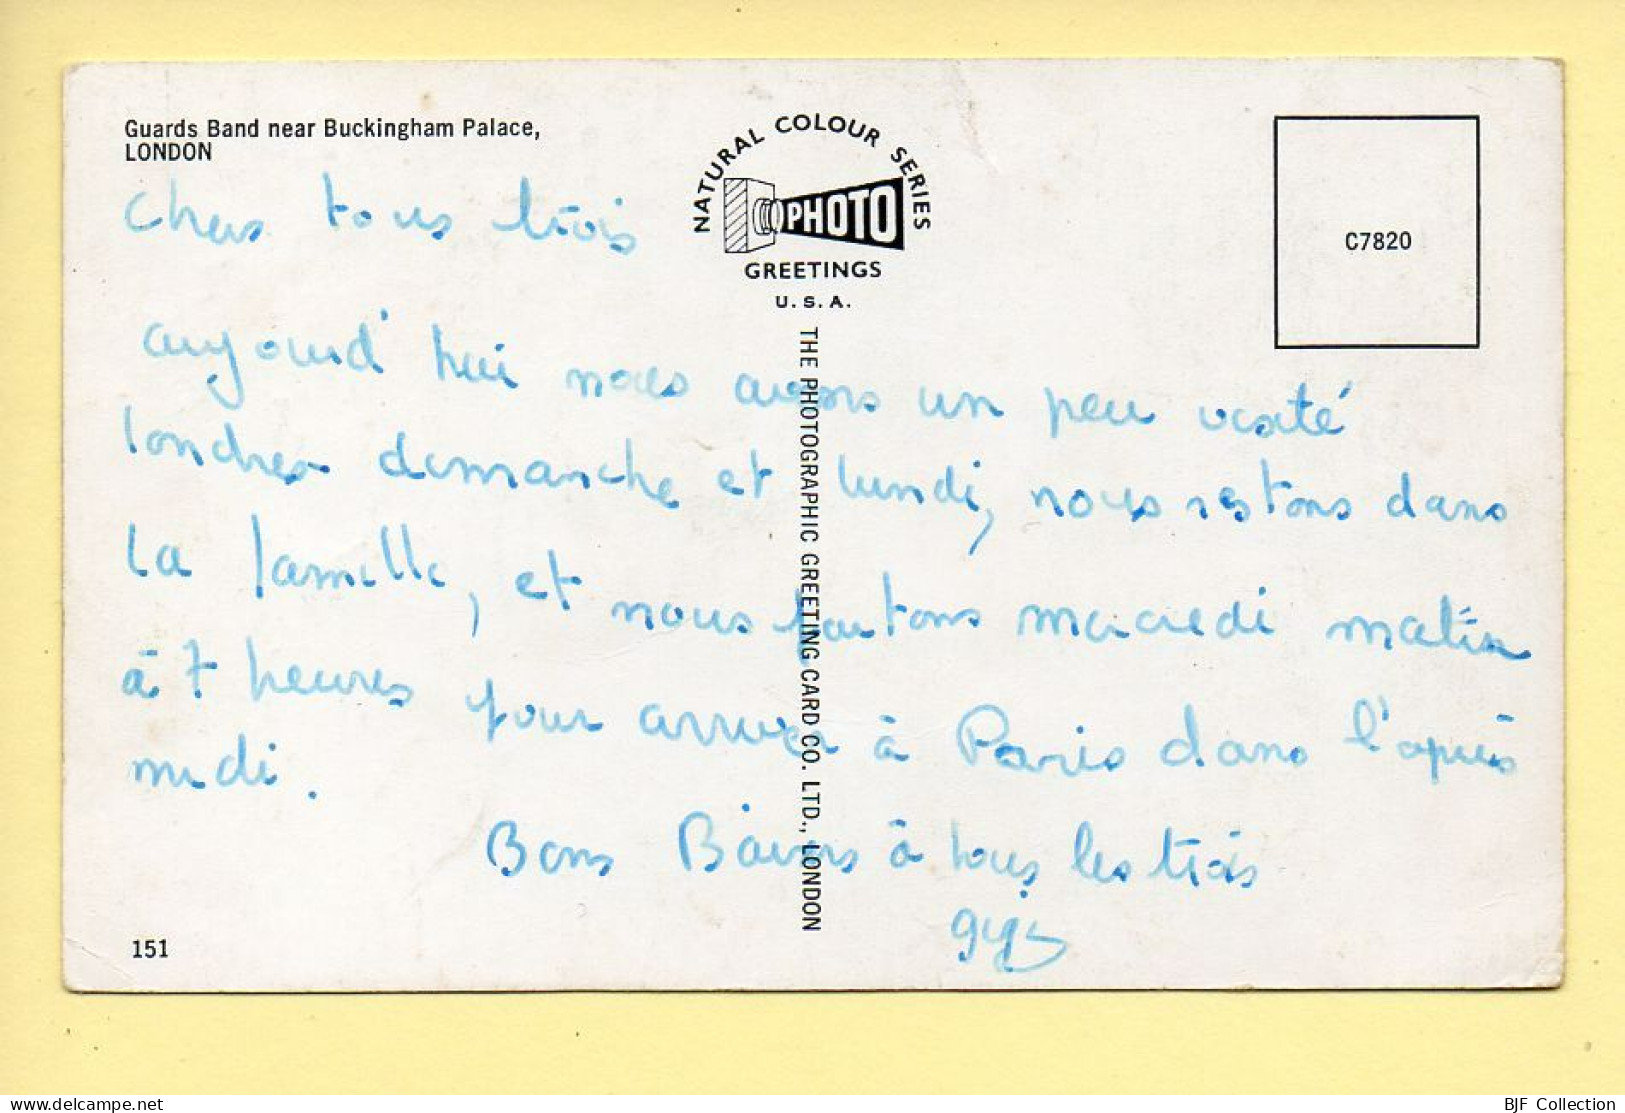 Guards Band near Buckingham Palace,
LONDON
NATURAL COLOUR SERIES
PHOTO
GREETINGS
U.S.A.
C7820
THE PHOTOGRAPHIC GREETING CARD CO. LTD., LONDON
chers tous trois
aujourd'hui nous avons un peu visité
londres dimanche et lundi, nous restons dans
la famille, et nous partons mercredi matin
à 7 heures pour arriver à Paris dans l'après
midi.
Bons Baisers à tous les trois
151
delcampe.net
BJF Collection